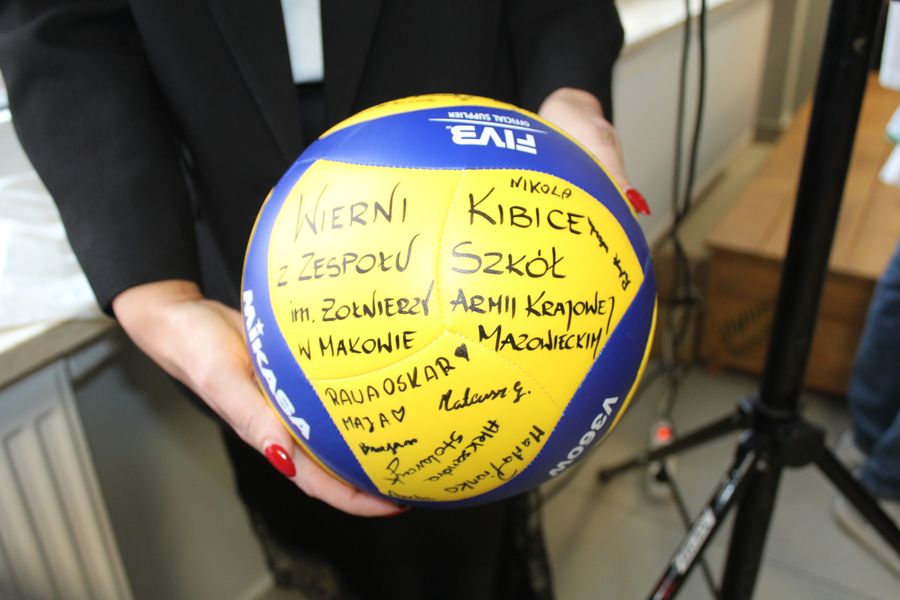 FIVB
OFFICIAL SUPPLIER
NIKOLA
WIERNI KIBICE
Z ZESPOŁU SZKÓŁ
im. ŻOŁNIERZY ARMII KRAJOWEJ
W MAKOWIE MAZOWIECKIM
OSKAR
MAJA
Mateusz G.
Aleksandra
Marta
MIKASA
V360W